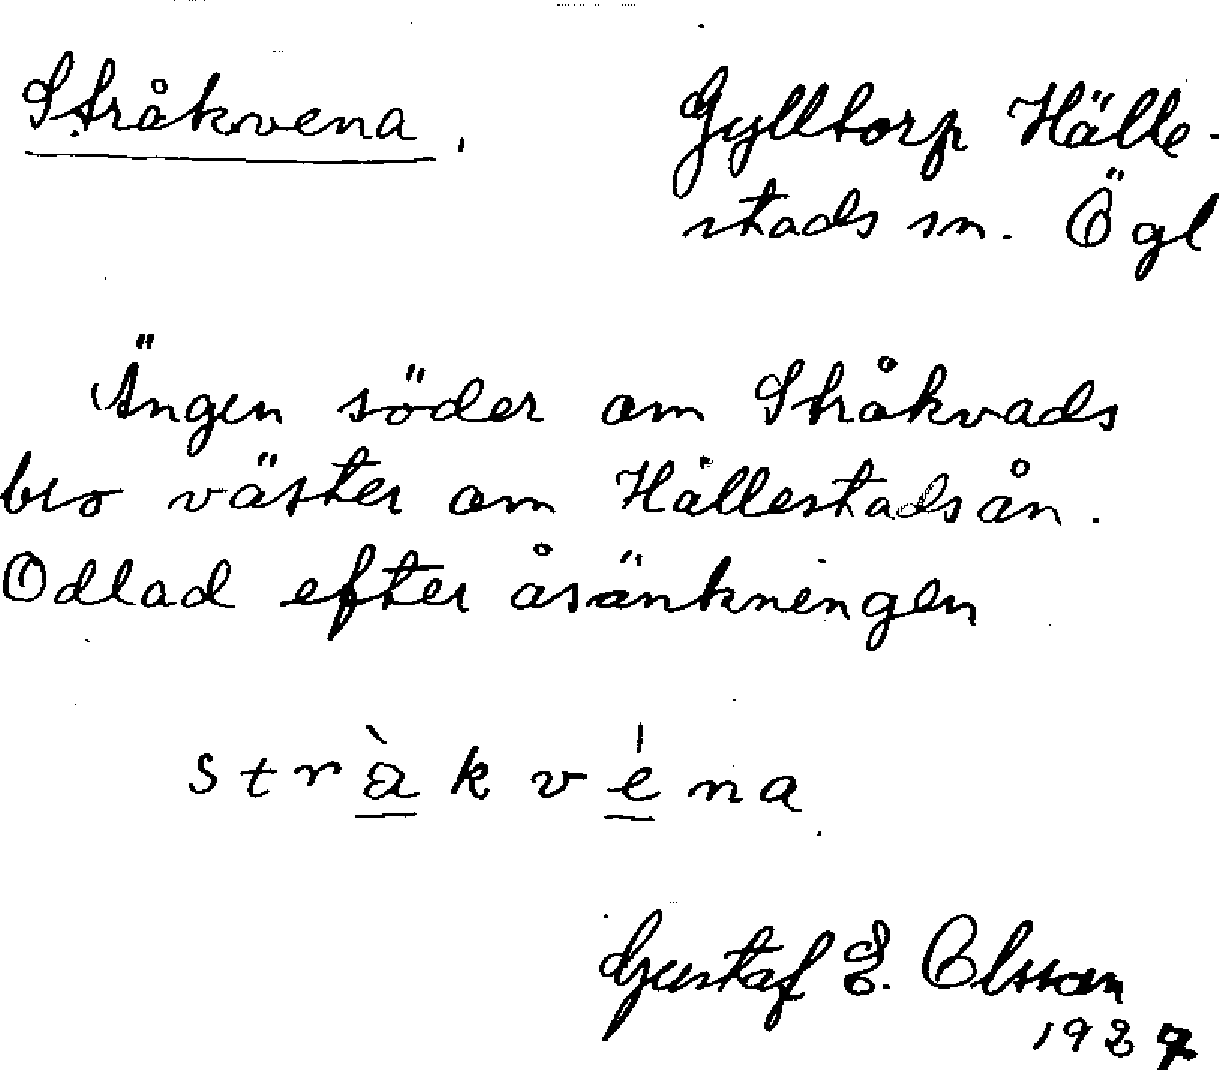 Stråkvena. Gylltorp Hälle-
stads sn. Ögl
Ängen söder om Stråkvads
bro väster om Hällestadsån.
Odlad efter åsänkningen
stràkvéna
Gustaf E. Olsson
1927